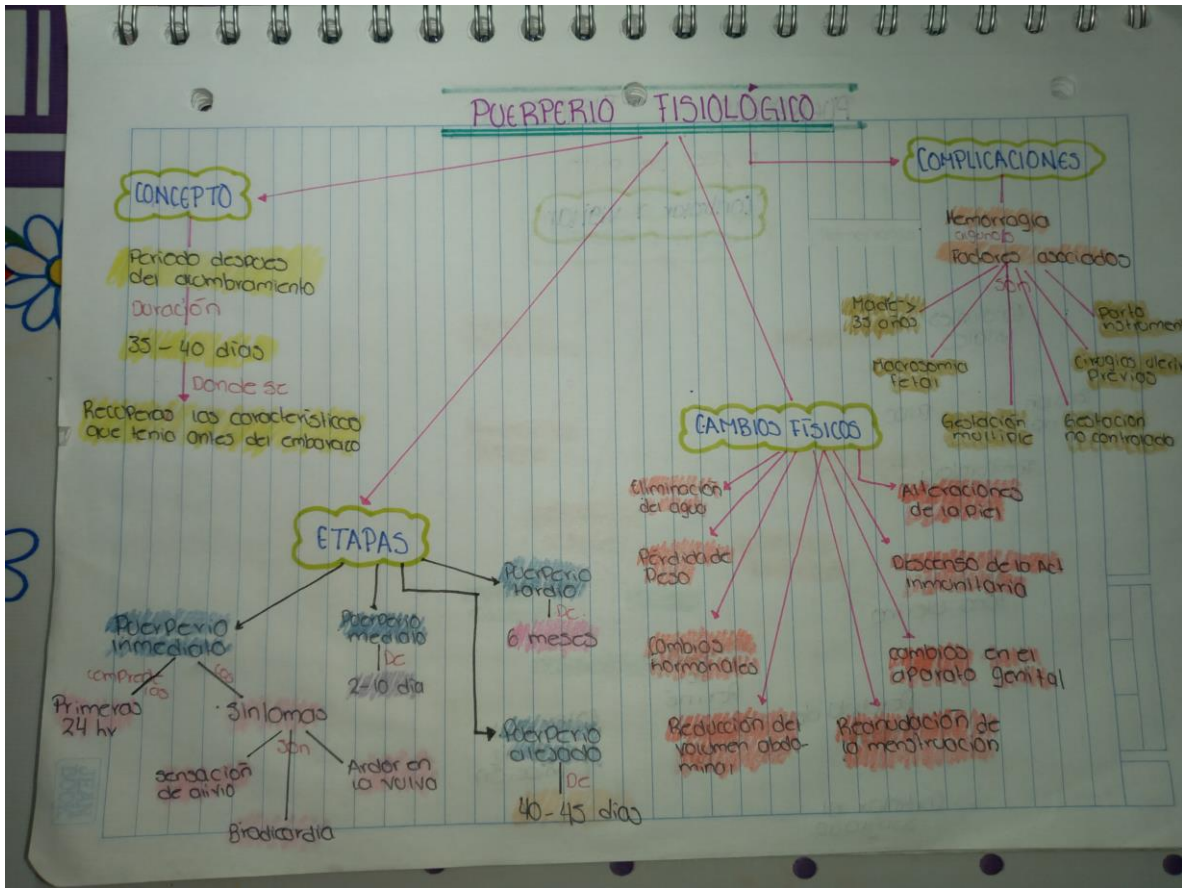 PUERPERIO FISIOLOGICO
CONCEPTO
Periodo despues
del alumbramiento
Duración
35 - 40 dias
Donde se
Recuperas las caracteristica
que tenia antes del embaraco
ETAPAS
Puerperio
inmediato
Primeras
24 hr
las
Sintomas
son
sensación
de alivio
Bradicardia
Ardor en
la vulva
Puerperio
mediato
De
2-10 dia
Puerperio
tardio
De
6 meses
Puerperio
alejado
De
40-45 dias
CAMBIOS FÍSICOS
Eliminación
del agua
Pérdida de
Peso
Cambios
hormonales
Reducción del
volumen abdo-
minal
Reanudación de
la menstruación
cambios en el
aparato genital
Descenso de la Act
Inmunitaria
Alteraciones
de la piel
COMPLICACIONES
Hemorragia
algunos
asociados
son
Madre >
35 años
Macrosomia
fetal
Gestación
multiple
Gestacion
no controlada
Previas
Parto